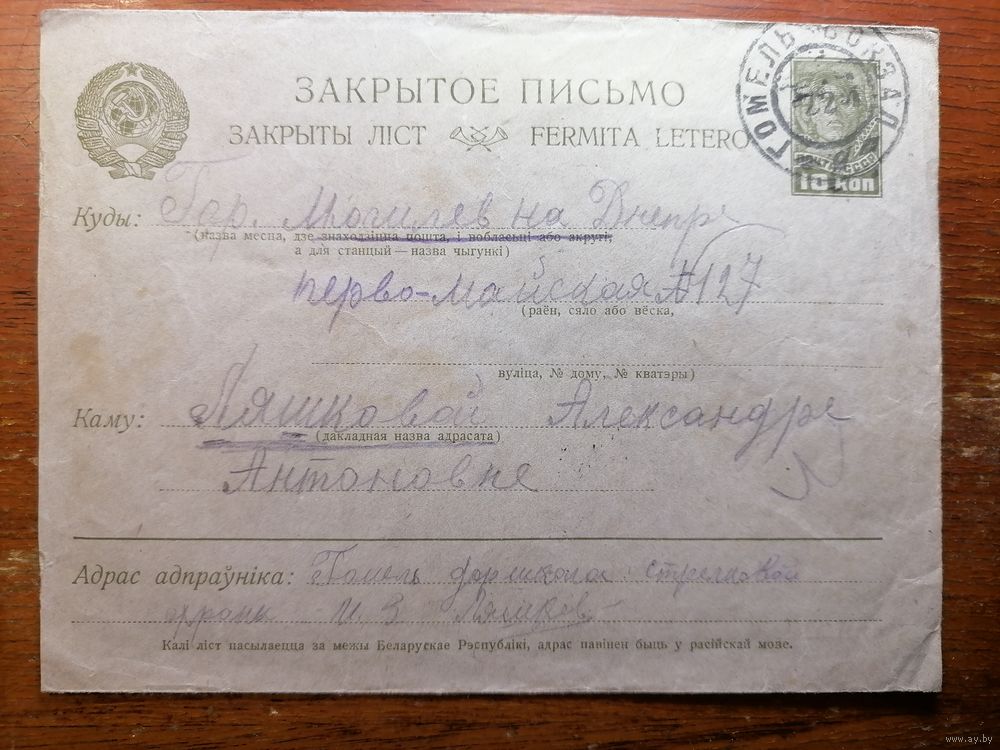 ЗАКРЫТОЕ ПИСЬМО
ЗАКРЫТЫ ЛІСТ FERMITA LETERO
ГОМЕЛЬ ВОКЗАЛ
ПОЧТА СССР
10 КОП
Куды: Гор. Могилев на Днепре
(назва месца, дзе знаходзіцца пошта, і вобласьці або акругі;
а для станцый — назва чыгункі)
перво-Майская №127
(раён, сяло або вёска,
вуліца, № дому, № кватэры)
Каму: Ляшковой Александре
(дакладная назва адрасата)
Антоновне
Адрас адпраўніка: Гомель стрелковой
И. З. Ляшков
Калі ліст пасылаецца за межы Беларускае Рэспублікі, адрас павінен быць у расійскай мове.
www.ay.by